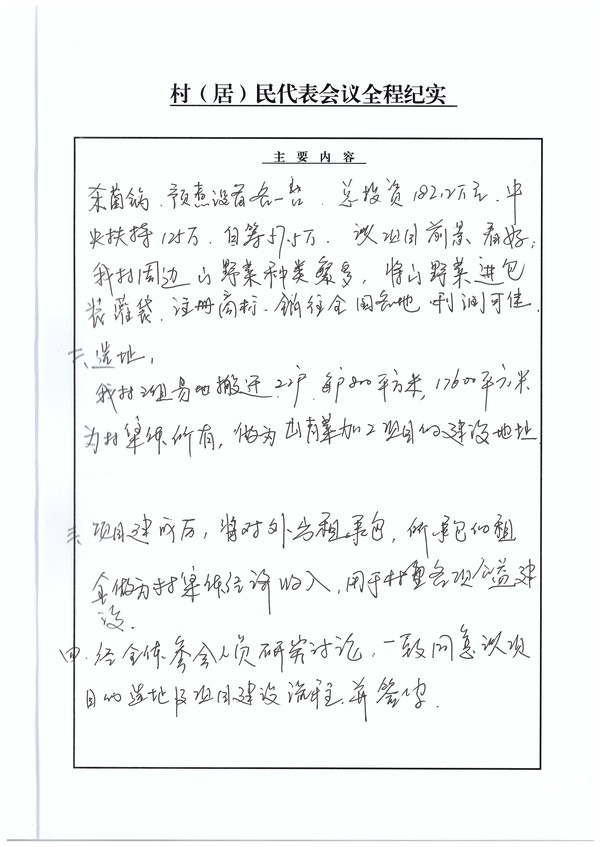 村（居）民代表会议全程纪实
主 要 内 容
杀菌锅、预煮设备各一台，总投资182.2万元，中
央扶持125万，自筹57.5万，该项目前景看好，
我村周边山野菜种类繁多，将山野菜进包
装灌袋、注册商标、销往全国各地，利润可佳
二、选址：
我村2组易地搬迁22户，每户800平方米，17600平方米
为村集体所有，做为山野菜加工项目的建设地址
三、项目建成后，将对外出租承包，所承包的租
金做为村集体经济收入，用于村里各项公益建
设。
四、经全体参会人员研究讨论，一致同意该项
目的选址及项目建设流程，并签字。